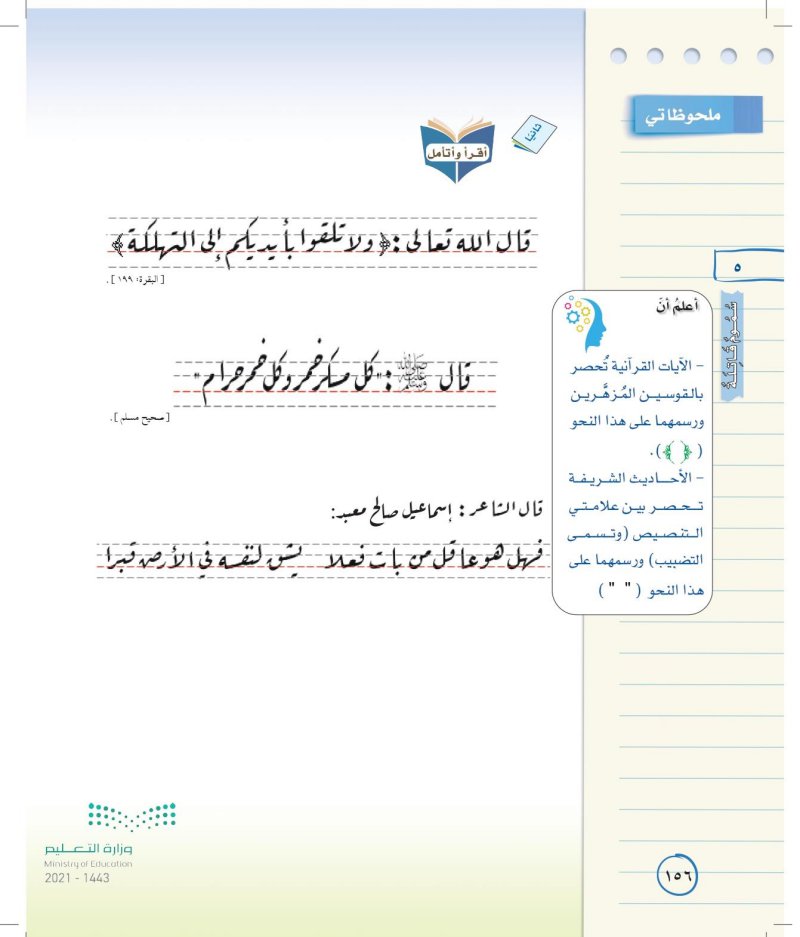 ملحوظاتي
ثانيًا
أقرأ وأتأمل
قال الله تعالى : ﴿ ولا تلقوا بأيديكم إلى التهلكة ﴾
[ البقرة: ١٩٩ ] .
٥
سُمُومٌ قَاتِلَةٌ
أعلمُ أنَ
– الآيات القرآنية تُحصر
بالقوسين المُزهَّرين
ورسمهما على هذا النحو
( ﴿ ﴾ ) .
– الأحاديث الشريفة
تحصر بين علامتي
التنصيص (وتسمى
التضبيب) ورسمهما على
هذا النحو ( " " )
قال ﷺ : "كل مسكر خمر وكل خمر حرام"
[ صحيح مسلم ] .
قال الشاعر : إسماعيل صالح معبد:
فهل هو عاقل من بات فعلا يشق لنفسه في الأرض قبرا
وزارة التعليم
Ministry of Education
2021 - 1443
١٥٦